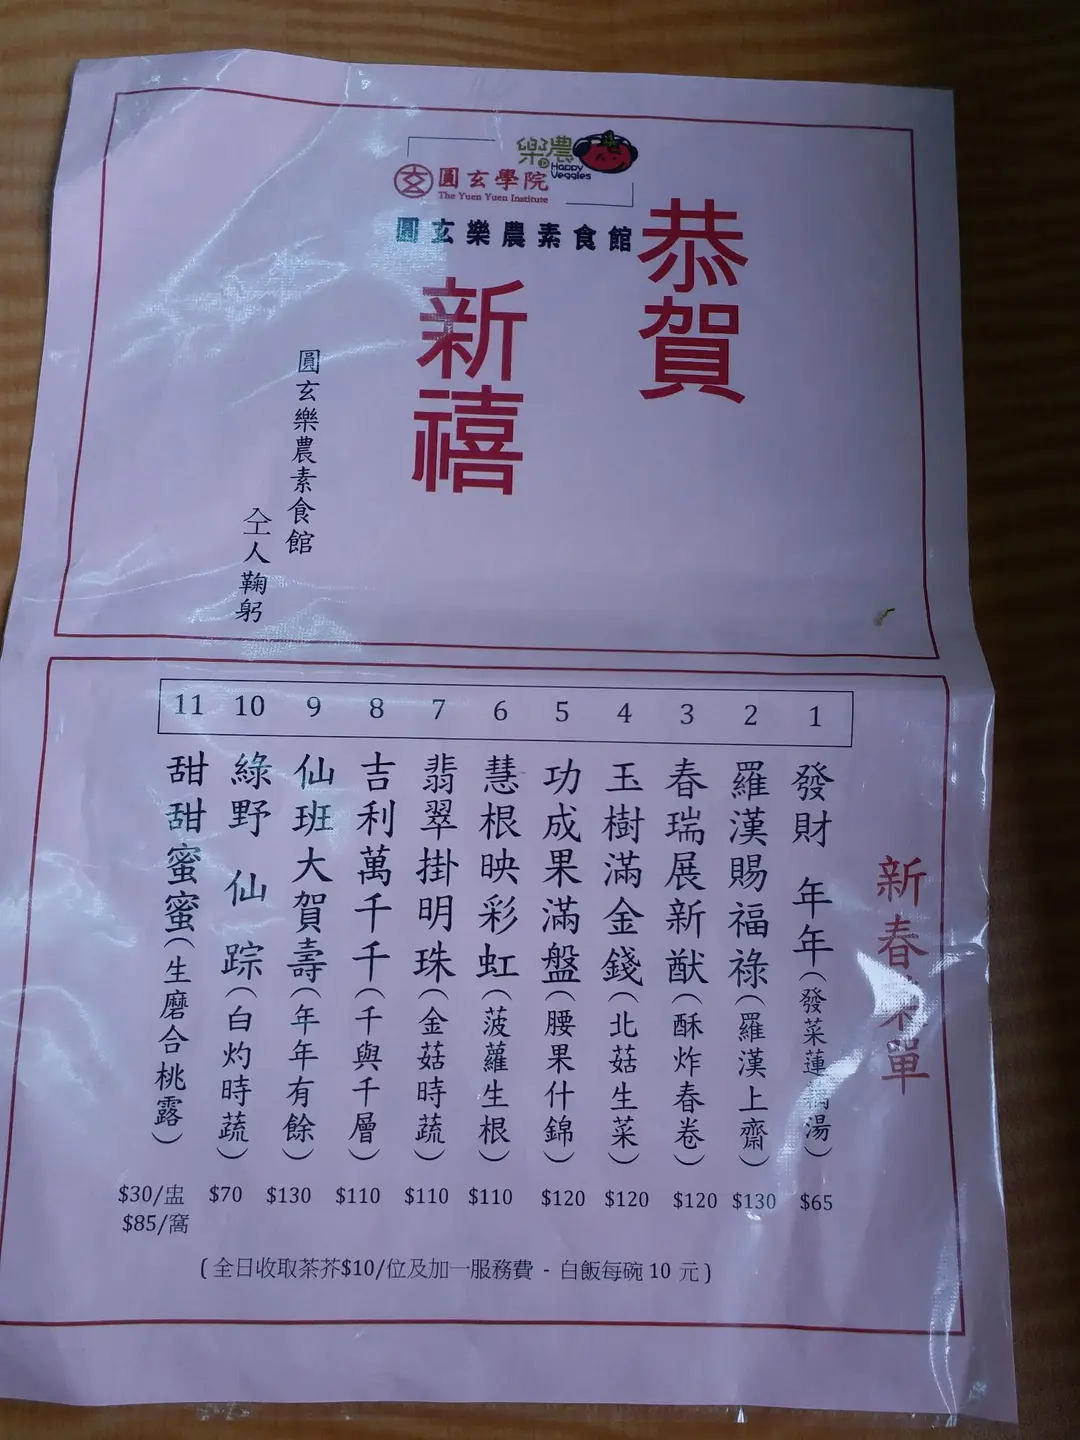 樂農
Happy
Veggies
玄 圓玄學院
The Yuen Yuen Institute
圓玄樂農素食館
恭賀
新禧
圓玄樂農素食館
仝人鞠躬
新春 單
1 發財 年年(發菜蓮 湯) $65
2 羅漢賜福祿(羅漢上齋) $130
3 春瑞展新猷(酥炸春卷) $120
4 玉樹滿金錢(北菇生菜) $120
5 功成果滿盤(腰果什錦) $120
6 慧根映彩虹(菠蘿生根) $110
7 翡翠掛明珠(金菇時蔬) $110
8 吉利萬千千(千與千層) $110
9 仙班大賀壽(年年有餘) $130
10 綠野 仙 踪(白灼時蔬) $70
11 甜甜蜜蜜(生磨合桃露) $30/盅
$85/窩
(全日收取茶芥$10/位及加一服務費 - 白飯每碗 10 元)